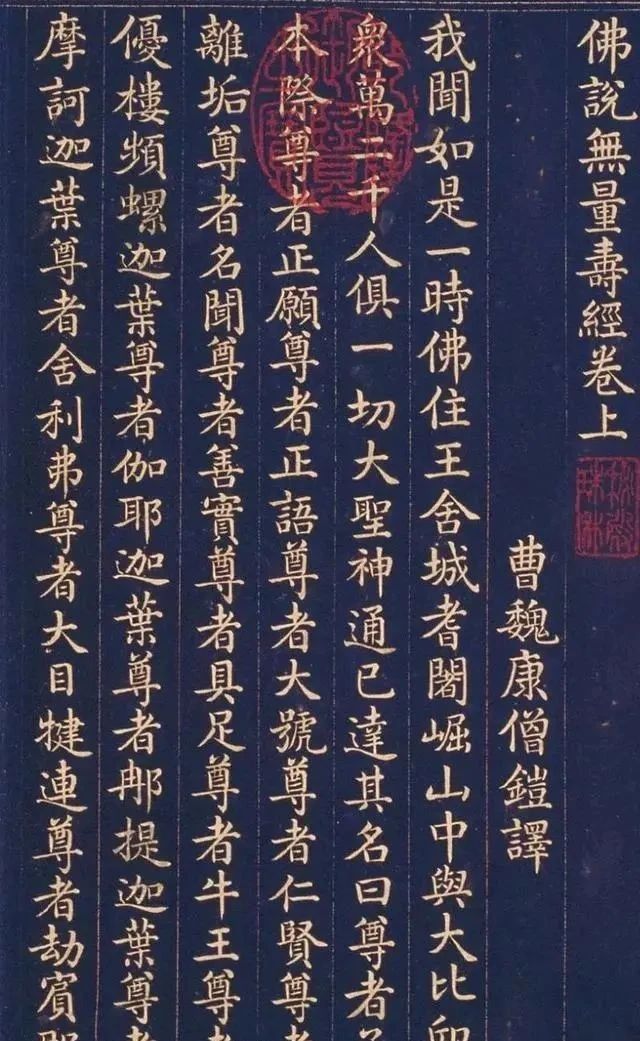 佛說無量壽經卷上
曹魏康僧鎧譯
我聞如是一時佛住王舍城耆闍崛山中與大比
衆萬二千人俱一切大聖神通已達其名曰尊者
本際尊者正願尊者正語尊者大號尊者仁賢尊
離垢尊者名聞尊者善實尊者具足尊者牛王尊
優樓頻螺迦葉尊者伽耶迦葉尊者那提迦葉尊
摩訶迦葉尊者舍利弗尊者大目犍連尊者劫賓